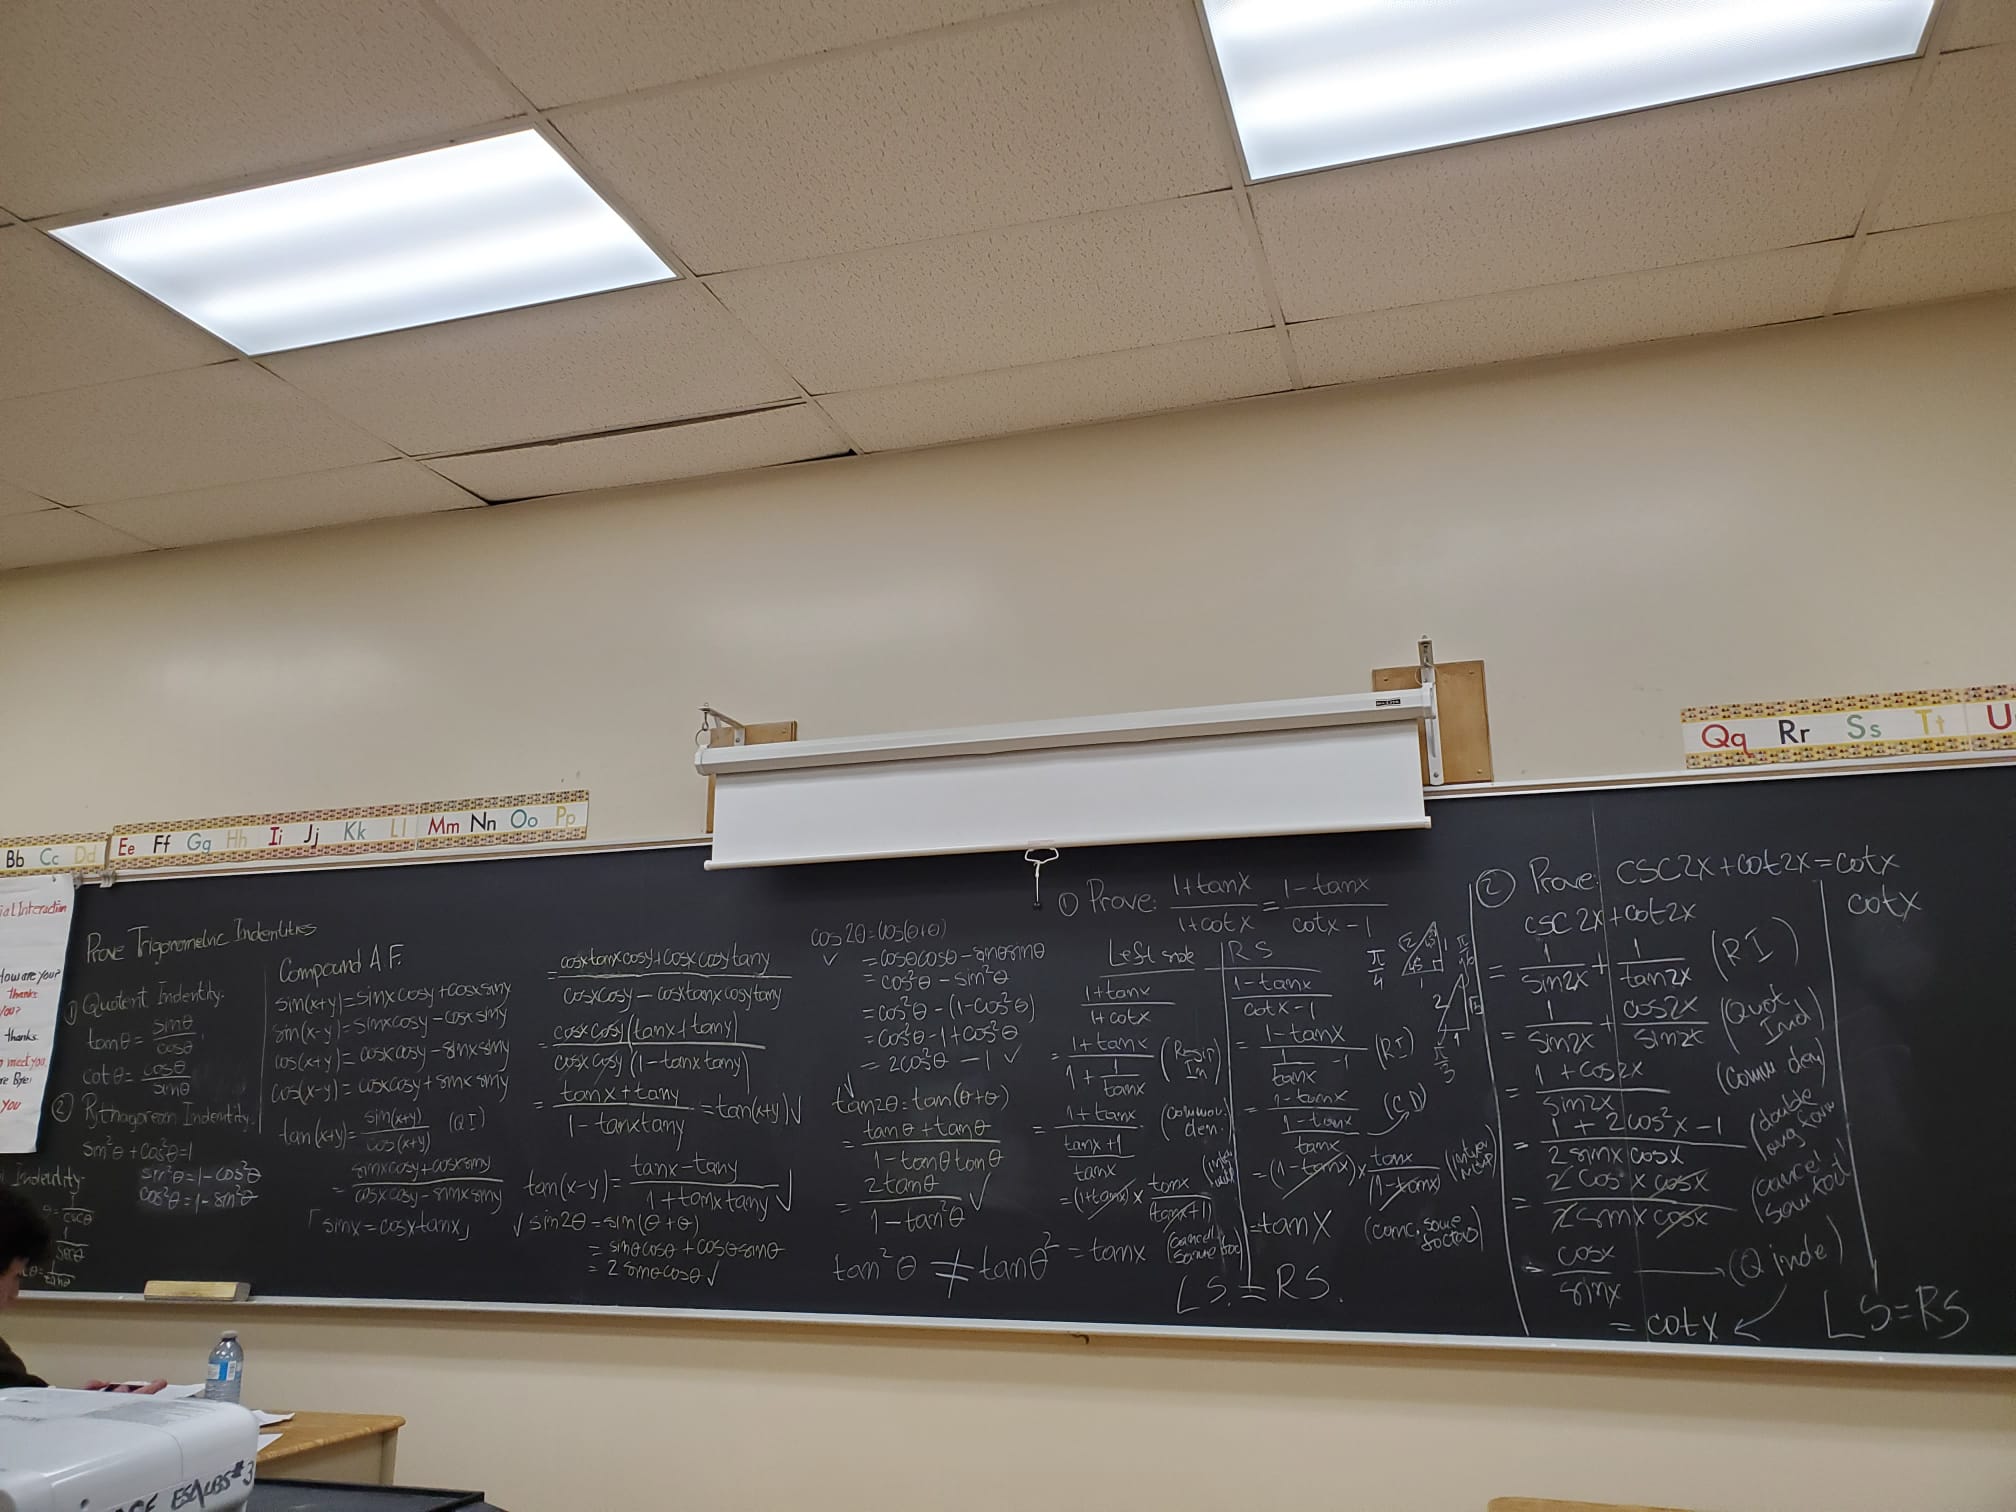 Bb Cc Dd Ee Ff Gg Hh Ii Jj Kk Ll Mm Nn Oo Pp
Qq Rr Ss Tt U
ial Interaction
How are you?
thanks
you?
thanks.
meet you
Bye!
you
Prove Trigonometric Indentities
① Quotient Indentity:
tanθ = sinθ/cosθ
cotθ = cosθ/sinθ
② Pythagorean Indentity.
sin²θ + cos²θ = 1
sin²θ = 1 - cos²θ
cos²θ = 1 - sin²θ
Indentity
1/cscθ
1/secθ
1/tanθ
Compound A.F.
sin(x+y) = sinxcosy + cosxsiny
sin(x-y) = sinxcosy - cosxsiny
cos(x+y) = cosxcosy - sinxsiny
cos(x-y) = cosxcosy + sinxsiny
tan(x+y) = sin(x+y)/cos(x+y) (QI)
= (sinxcosy + cosxsiny)/(cosxcosy - sinxsiny)
「sinx = cosxtanx」
= (cosxtanxcosy + cosxcosytany)/(cosxcosy - cosxtanxcosytany)
= cosxcosy(tanx + tany)/cosxcosy(1 - tanxtany)
= (tanx + tany)/(1 - tanxtany) = tan(x+y) ✓
tan(x-y) = (tanx - tany)/(1 + tanxtany) ✓
✓ sin2θ = sin(θ+θ)
= sinθcosθ + cosθsinθ
= 2sinθcosθ ✓
cos2θ = cos(θ+θ)
✓ = cosθcosθ - sinθsinθ
= cos²θ - sin²θ
= cos²θ - (1-cos²θ)
= cos²θ - 1 + cos²θ
= 2cos²θ - 1 ✓
✓ tan2θ = tan(θ+θ)
= (tanθ + tanθ)/(1 - tanθtanθ)
= 2tanθ/(1 - tan²θ) ✓
tan²θ ≠ tanθ²
① Prove: (1+tanx)/(1+cotx) = (1-tanx)/(cotx-1)
Left side
(1+tanx)/(1+cotx)
= (1+tanx)/(1 + 1/tanx)
= (1+tanx)/((tanx+1)/tanx) (common den.)
= (1+tanx) × tanx/(tanx+1)
= tanx (cancel same fac)
RS
(1-tanx)/(cotx-1)
= (1-tanx)/(1/tanx - 1) (RI)
= (1-tanx)/((1-tanx)/tanx) (CD)
= (1-tanx) × tanx/(1-tanx)
= tanx (canc. same factors)
LS. = RS.
π/4 √2 45 1 1
π/6 2 √3 1 π/3
② Prove: csc2x + cot2x = cotx
csc2x + cot2x
= 1/sin2x + 1/tan2x (RI)
= 1/sin2x + cos2x/sin2x (Quot Ind)
= (1 + cos2x)/sin2x (Comm. den)
= (1 + 2cos²x - 1)/(2sinxcosx) (double ang form
= 2cos²x cosx/(2sinx cosx) (cancel same fact)
= cosx/sinx → (Q inde)
= cotx
cotx
LS = RS